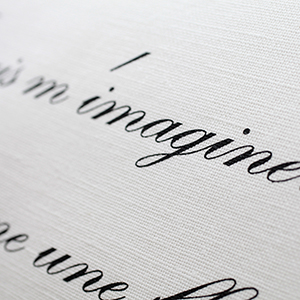 is m imagine
ne une